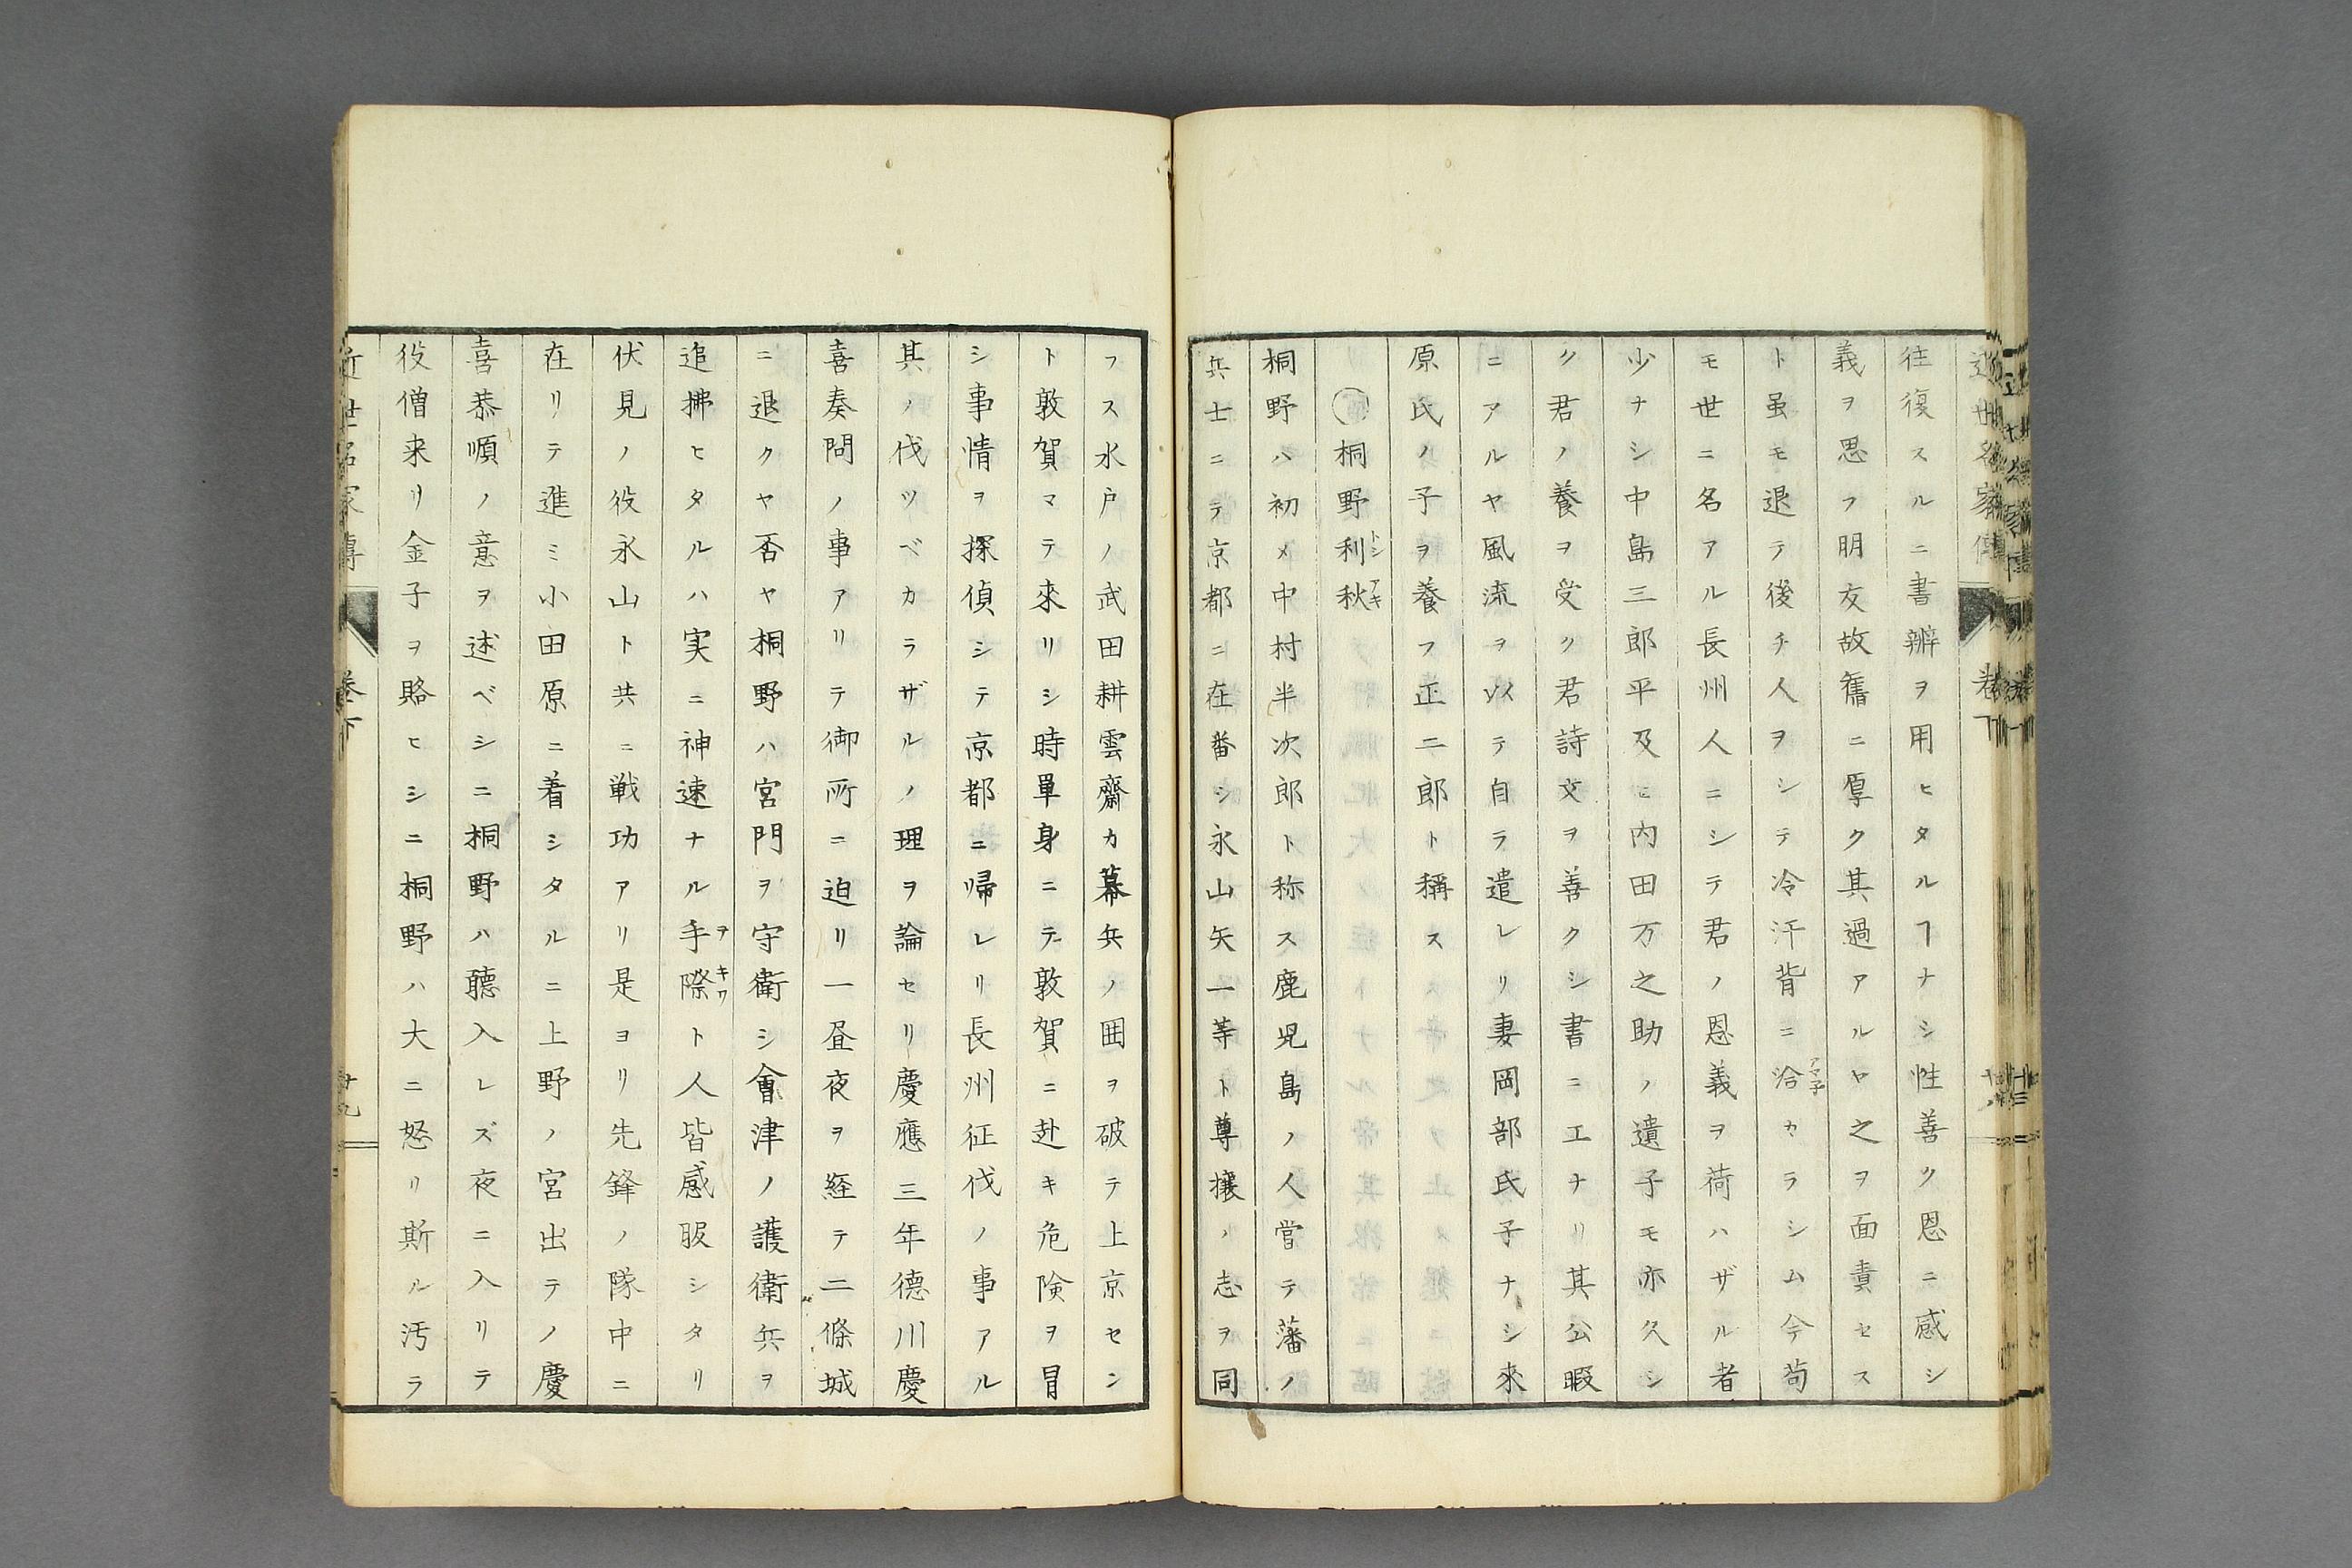 近世名家傳
卷下
往復スルニ書辨ヲ用ヒタルヿナシ性善ク恩ニ感シ
義ヲ思フ朋友故舊ニ厚ク其過アルヤ之ヲ面責セス
ト虽モ退テ後チ人ヲシテ冷汗背ニ洽カラシム今苟
モ世ニ名アル長州人ニシテ君ノ恩義ヲ荷ハザル者
少ナシ中島三郎平及ヒ内田万之助ノ遺子モ亦久シ
ク君ノ養ヲ受ク君詩文ヲ善クシ書ニ工ナリ其公暇
ニアルヤ風流ヲ以テ自ラ遣レリ妻岡部氏子ナシ來
原氏ノ子ヲ養フ正二郎ト稱ス
桐野利秋
トシ アキ
桐野ハ初メ中村半次郎ト称ス鹿児島ノ人嘗テ藩ノ
兵士ニテ京都ニ在番シ永山矢一等ト尊攘ノ志ヲ同
フス水戸ノ武田耕雲齋カ幕兵ノ囲ヲ破テ上京セン
ト敦賀マテ來リシ時單身ニテ敦賀ニ赴キ危険ヲ冒
シ事情ヲ探偵シテ京都ニ帰レリ長州征伐ノ事アル
其ノ伐ツベカラザルノ理ヲ論セリ慶應三年德川慶
喜奏問ノ事アリテ御所ニ迫リ一昼夜ヲ経テ二條城
ニ退クヤ否ヤ桐野ハ宮門ヲ守衛シ會津ノ護衛兵ヲ
追拂ヒタルハ実ニ神速ナル手際ト人皆感服シタリ
伏見ノ役永山ト共ニ戦功アリ是ヨリ先鋒ノ隊中ニ
在リテ進ミ小田原ニ着シタルニ上野ノ宮出テノ慶
喜恭順ノ意ヲ述ベシニ桐野ハ聽入レズ夜ニ入リテ
役僧来リ金子ヲ賂ヒシニ桐野ハ大ニ怒リ斯ル汚ラ
近世名家傳
卷下
廿九